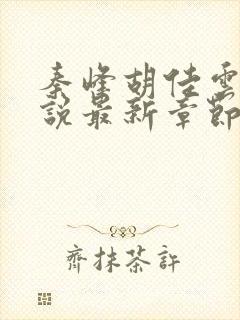 秦峰胡佳雲
說最新章節
齊抹茶許